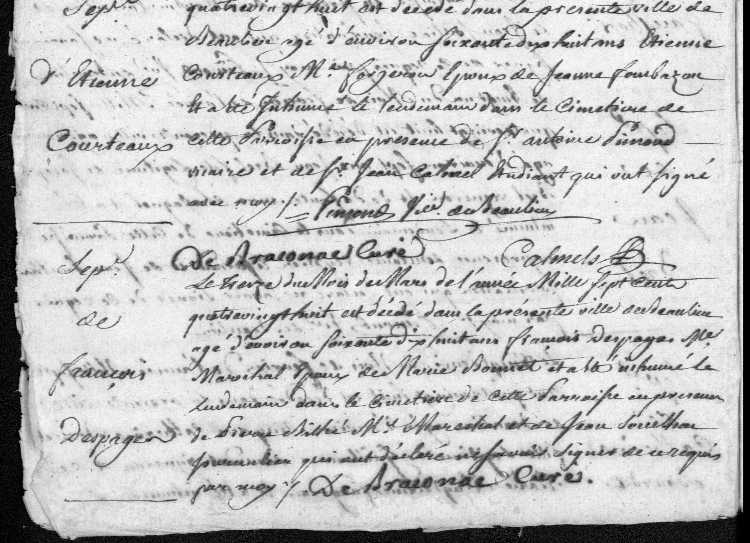 Sep.re
quatrevingt huit est décédé dans la présente ville de
Beaulieu agé d'environ soixante dix huit ans Etienne
d'Etienne
Courteaux M.e forgeron Epoux de Jeanne
Et a été Inhumé le lendemain dans le Cimetiere de
Courteaux
cette Paroisse en presence de S.r antoine
vicaire et de S.r Jean Calmel Etudiant qui ont signé
avec moy
Vic. de Beaulieu
De Braconac Curé Calmels
Sep.re
Le treize du Mois de Mars de l'année Mille sept cents
de
quatrevingt huit est décédé dans la présente ville de Beaulieu
agé d'environ soixante dix huit ans françois Despages M.e
françois
Maréchal Epoux de Marie Bonnet et a été inhumé le
Lendemain dans le Cimetiere de cette Parroisse en presence
Despages
de Pierre M.e Marechal et de Jean
qui ont déclaré ne savoir signer de ce requis
par moy De Braconac Curé.